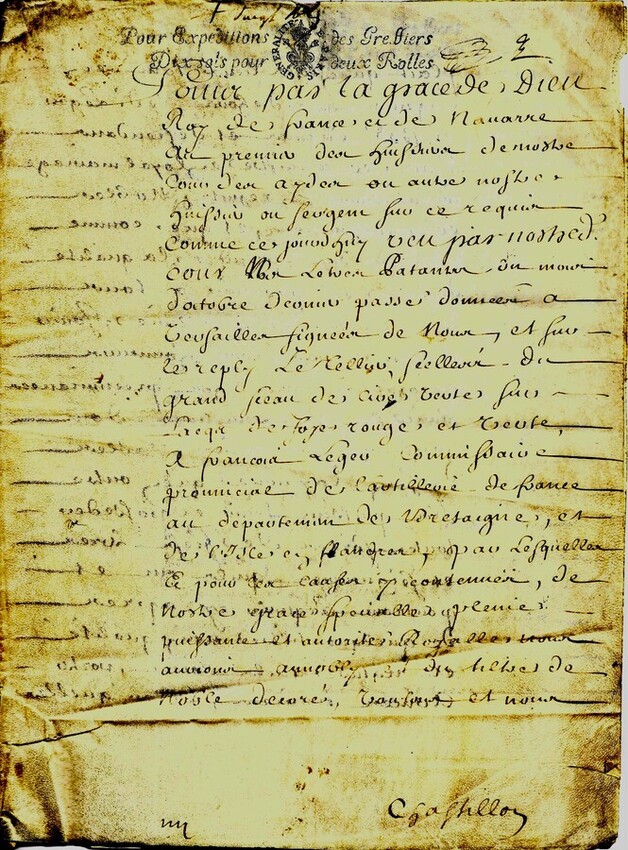 Pour Expeditions des Greffiers
Dix sols pour deux Rolles
GENERALITE DE PARIS
Louis par la grace de Dieu
Roy de france et de Navarre
Au premier des huissiers de nostre
Cour des aydes ou autre nostre
huissier ou sergent sur ce requis
Comme ce jourdhuy veu par nostred.
Cour les Lettres Patantes du mois
d'octobre dernier passé données a
Versailles signées de Nous, et sur
le reply Le Tellier scellées du
grand sceau de cire verte sur
Lacqs de soye rouge et verte,
A francois Leger Commissaire
provincial de l'artillerie de france
au departement de Bretaigne, et
de l'Isle en flandres, par Lesquelles
Et pour les causes y contenues, de
Nostre grace specialle plenie
puissance et autorité Royalle nous
aurions annobly du tiltre de
Noble decoré, et nous
Chastillon